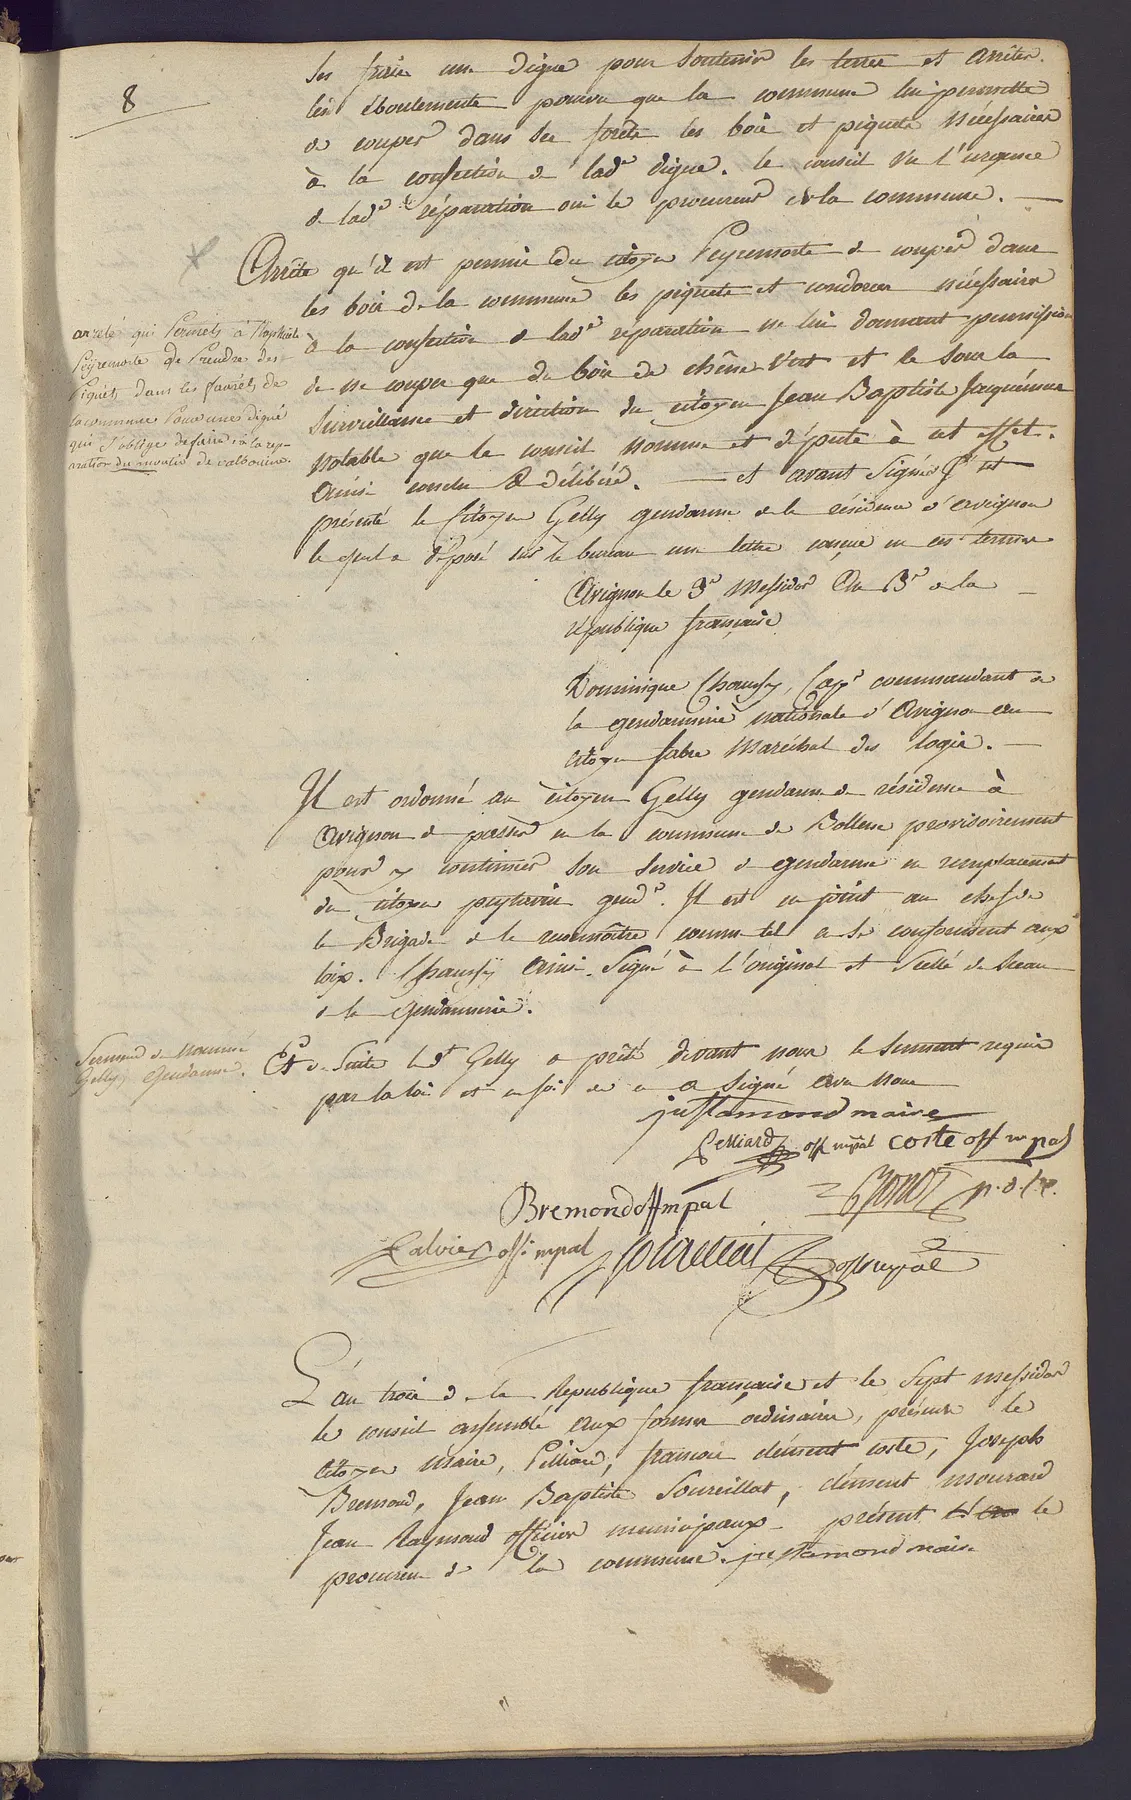 8
ses frais une digue pour soutenir les terres et arrêter
les éboulements pourvu que la commune lui permette
de couper dans ses forêts les bois et piquets nécessaires
à la confection de lad.e digue. le conseil vu l'urgence
de lad.e réparation oui le procureur de la commune.
Arrête qu'il est permis au citoyen Peyremorte de couper dans
les bois de la commune les piquets et nécessaires
à la confection de lad.e réparation ne lui donnant permission
de ne couper que du bois de chêne vert et le sous la
surveillance et direction du citoyen Jean Baptiste
notable que le conseil nomme et députe à cet effet.
Ainsi conclu & délibéré. et avant signer s'est
présenté le citoyen Gelly gendarme de la résidence d'avignon
lequel a déposé sur le bureau une lettre conçue en ces termes
arreté qui Permets à
Peyremorte de Prendre des
Piquets dans les fauréts de
la commune Pour une digue
qui s'oblige de faire, à la rep-
aration du moulin de
Avignon le 3e Messidor An 3e de la
république française
Dominique Chaussy, Cap.e commandant de
la gendarmerie nationale d'Avignon au
citoyen fabre Maréchal des logis.
Il est ordonné au citoyen Gelly gendarme de résidence à
avignon de passer en la commune de Bollene provisoirement
pour y continuer son service de gendarme en remplacement
du citoyen gend.e. Il est enjoint au chef de
la Brigade de le reconnoître comme tel et se conformant aux
loix. Chaussy Ainsi Signé à l'original et Scellé du Sceau
de la gendarmerie.
Serment de Nommé
Gelly gendarme.
Et de Suite led.t Gelly a prêté devant nous le serment requis
par la loi et en foi de ce a signé avec nous
justamond maire
Pelliard off mpal coste off mpal
Bremond off mpal
Calvier off. mpal
off mpal
L'an trois de la République française et le Sept messidor
le conseil assemblé aux formes ordinaires, présents le
citoyen maire, Pelliard, françois clément coste, Joseph
Bremond, Jean Baptiste Soureillat, clément mourard
Jean Raymond officiers municipaux présent le
procureur de la commune. justamond maire